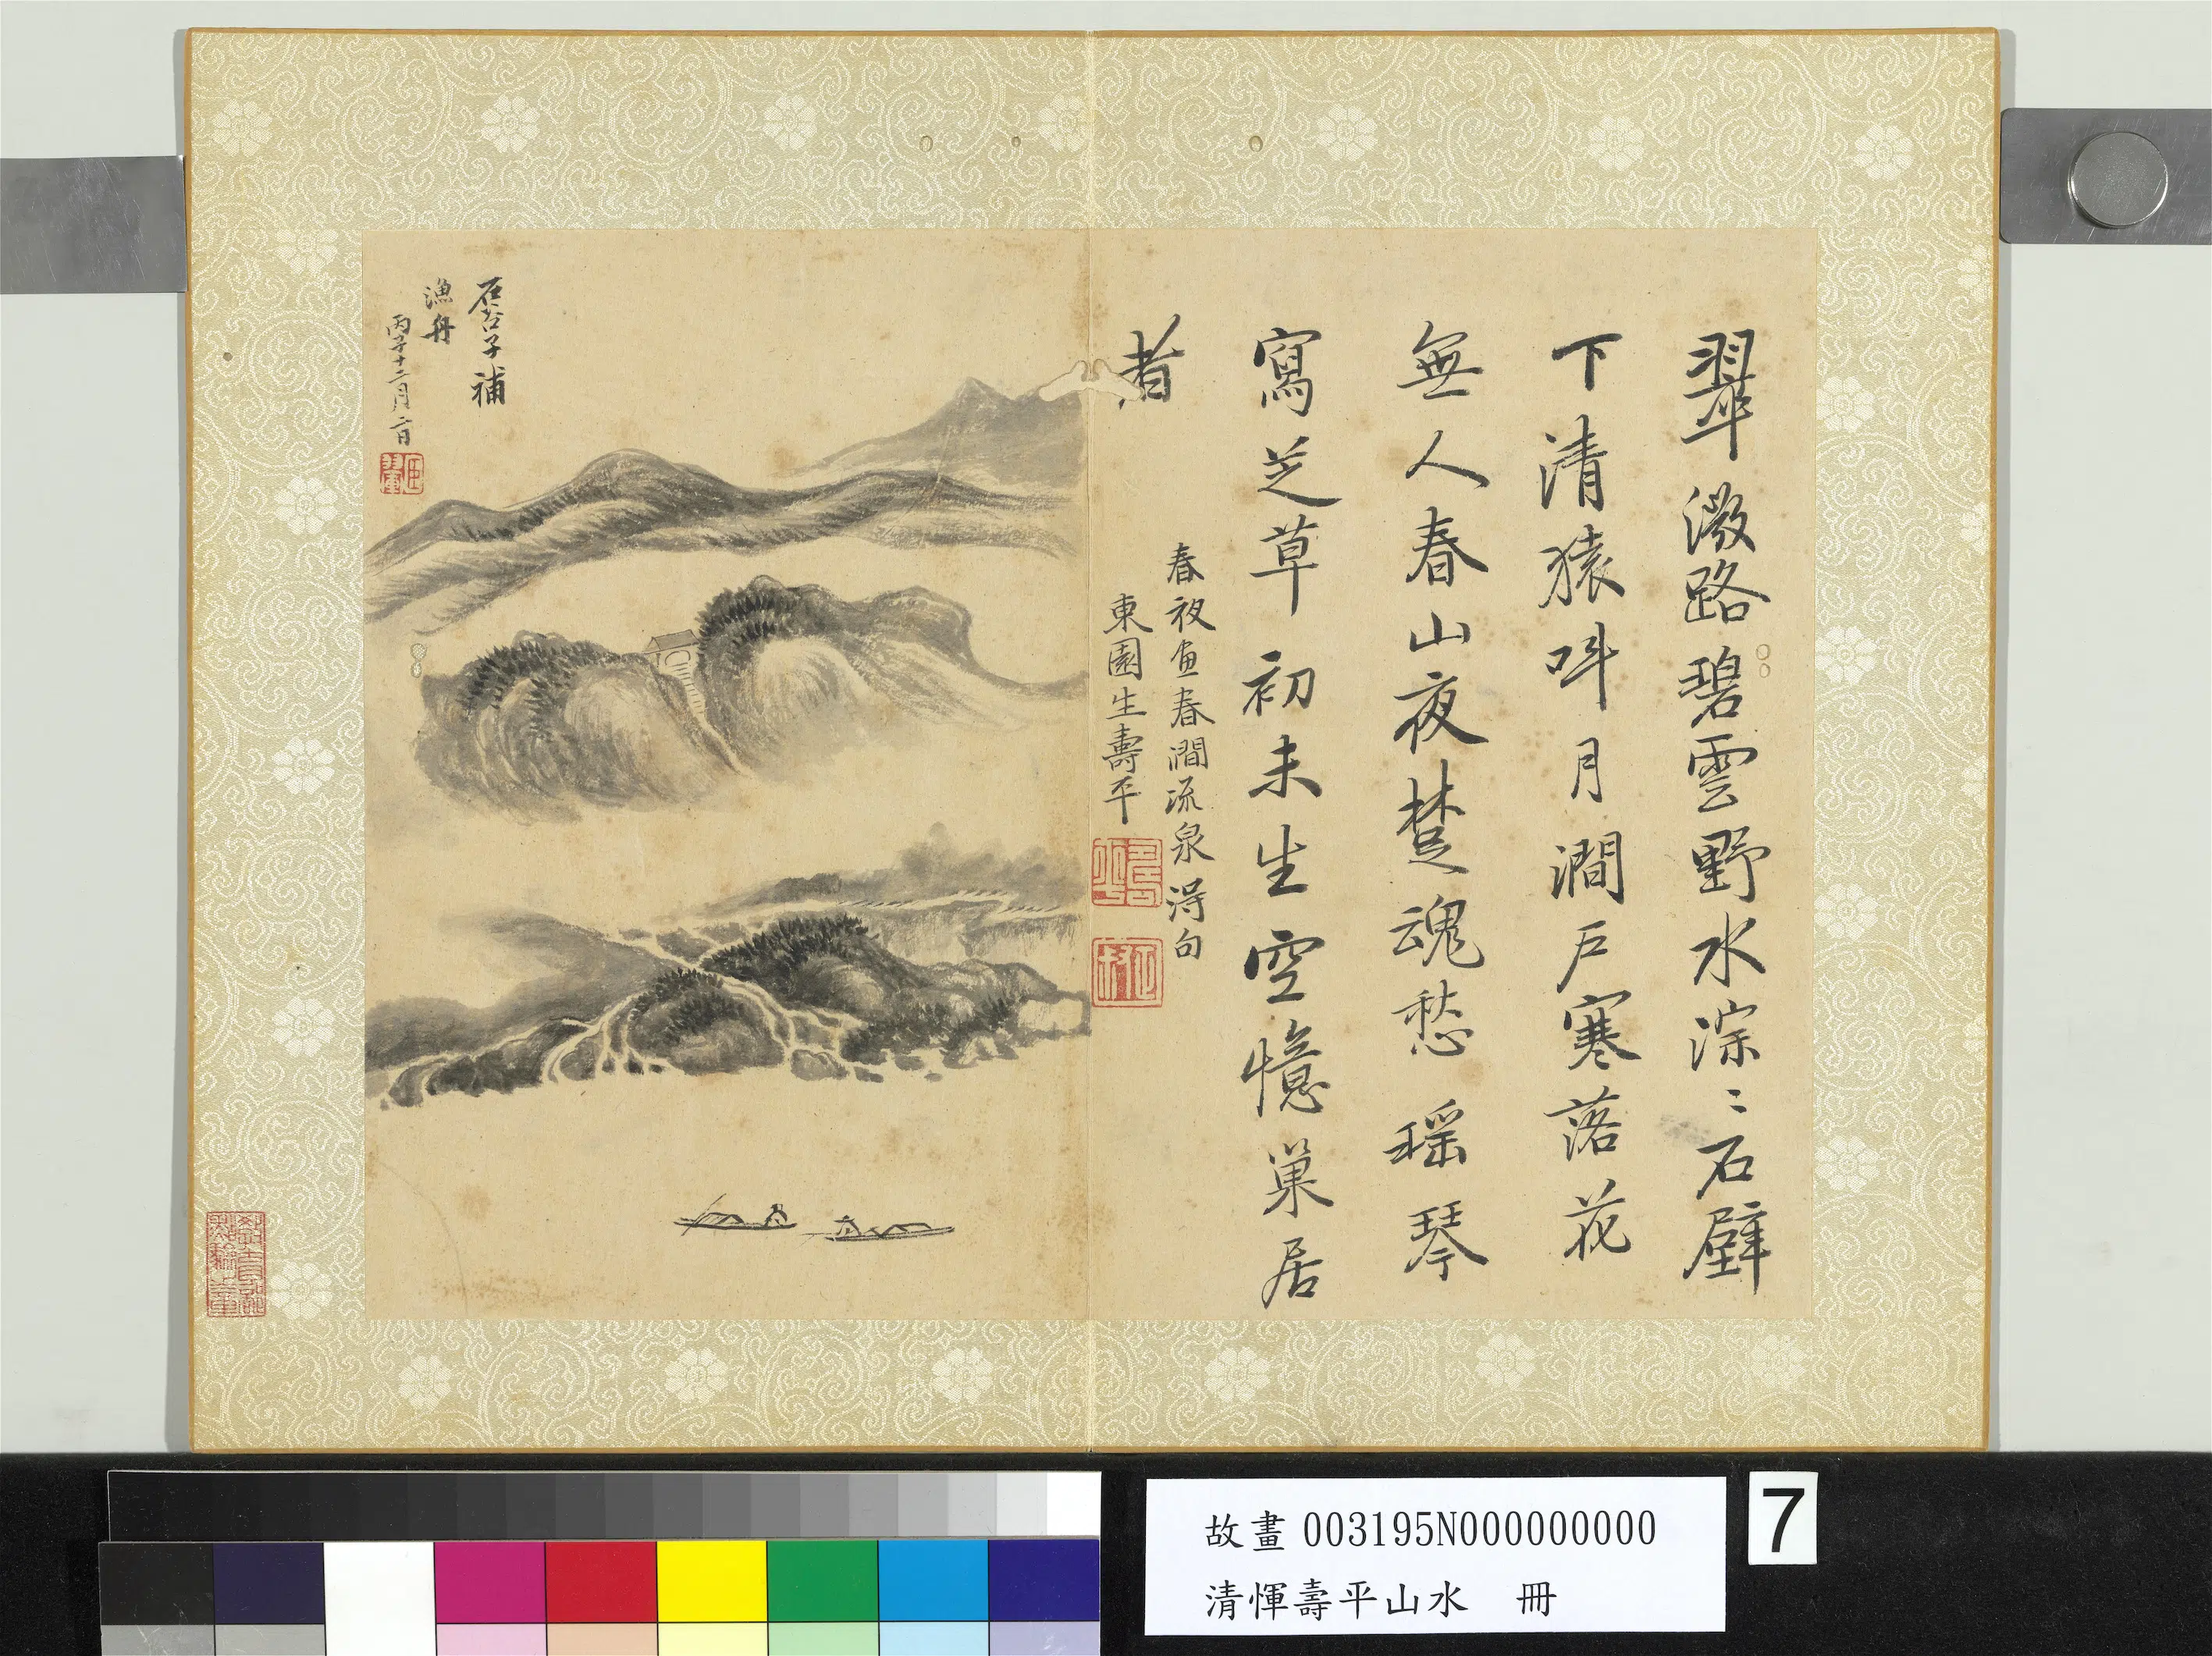 翠微路碧雲野水淙〻石壁
下清猿呌月澗戶寒落花
無人春山夜楚魂愁瑶琴
寫芝草初未生空憶巢居
者
春夜画春澗流泉得句
東園生壽平
石谷子補
漁舟
丙子十二月二日
故畫003195N000000000
清惲壽平山水 冊
7